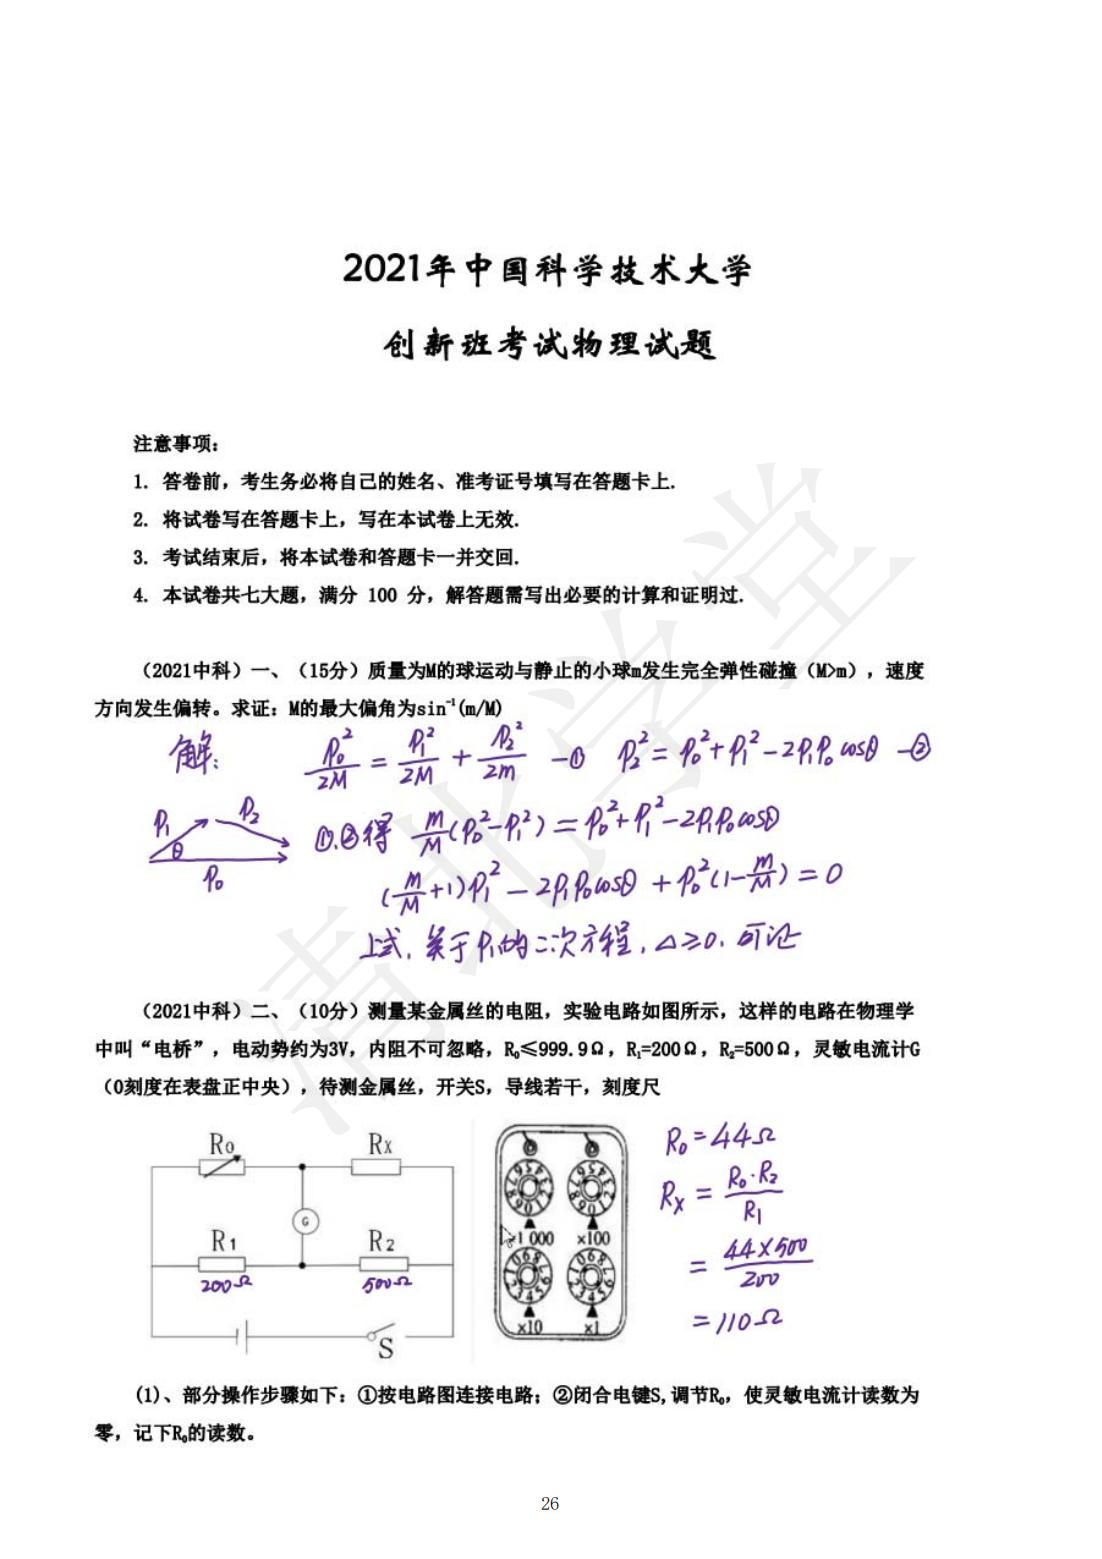 2021年中国科学技术大学
创新班考试物理试题
注意事项:
1. 答卷前，考生务必将自己的姓名、准考证号填写在答题卡上.
2. 将试卷写在答题卡上，写在本试卷上无效.
3. 考试结束后，将本试卷和答题卡一并交回.
4. 本试卷共七大题，满分 100 分，解答题需写出必要的计算和证明过.
（2021中科）一、（15分）质量为M的球运动与静止的小球m发生完全弹性碰撞（M>m），速度
方向发生偏转。求证：M的最大偏角为sin⁻¹(m/M)
解: P₀²/2M = P₁²/2M + P₂²/2m —① P₂² = P₀² + P₁² − 2P₁P₀cosθ —②
P₁ P₂ θ P₀
①.②得 m/M(P₀²−P₁²) = P₀² + P₁² − 2P₁P₀cosθ
(m/M+1)P₁² − 2P₁P₀cosθ + P₀²(1−m/M) = 0
上式, 关于P₁的二次方程, Δ≥0. 可证
（2021中科）二、（10分）测量某金属丝的电阻，实验电路如图所示，这样的电路在物理学
中叫“电桥”，电动势约为3V，内阻不可忽略，R₀≤999.9Ω，R₁=200Ω，R₂=500Ω，灵敏电流计G
（0刻度在表盘正中央），待测金属丝，开关S，导线若干，刻度尺
R₀ Rx
G
R₁ R₂
200Ω 500Ω
S
×1 000 ×100
×10 ×1
R₀=44Ω
Rx = R₀·R₂/R₁
= 44×500/200
=110Ω
(1)、部分操作步骤如下：①按电路图连接电路；②闭合电键S,调节R₀，使灵敏电流计读数为
零，记下R₀的读数。
26
清北学堂